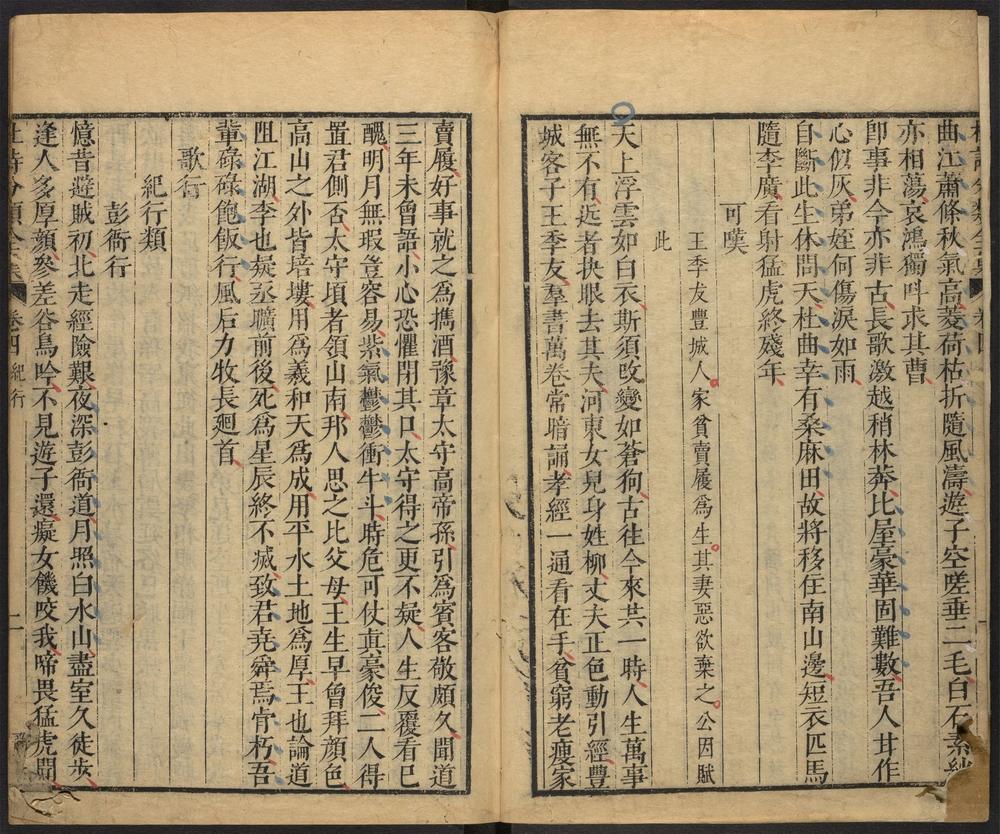 曲江蕭條秋氣高菱荷枯折隨風濤遊子空嗟垂二毛白石素
亦相蕩哀鴻獨呌求其曹
卽事非今亦非古長歌激越稍林莽比屋豪華固難數吾人甘作
心似灰弟姪何傷淚如雨
自斷此生休問天杜曲幸有桑麻田故將移住南山邊短衣匹馬
隨李廣看射猛虎終殘年
可嘆
王季友豐城人家貧賣履爲生其妻惡欲棄之公因賦
此
天上浮雲如白衣斯須攺變如蒼狗古往今來共一時人生萬事
無不有近者抉眼去其夫河東女兒身姓柳丈夫正色動引經豐
城客子王季友羣書萬卷常暗誦孝經一通看在手貧窮老瘦家
賣履好事就之爲擕酒豫章太守高帝孫引爲賓客敬頗久聞道
三年未曾語小心恐懼閉其口太守得之更不疑人生反覆看已
醜明月無瑕豈容易紫氣鬱鬱衝牛斗時危可仗眞豪俊二人得
置君側否太守頃者領山南邦人思之比父母王生早曾拜顏色
高山之外皆培塿用爲義和天爲成用平水土地爲厚王也論道
阻江湖李也疑丞曠前後死爲星辰終不滅致君堯舜焉肯朽吾
輩碌碌飽飯行風后力牧長廻首
歌行
紀行類
彭衙行
憶昔避賊初北走經險艱夜深彭衙道月照白水山盡室久徒步
逢人多厚顏參差谷鳥吟不見遊子還癡女饑咬我啼畏猛虎聞
卷四 紀行 二